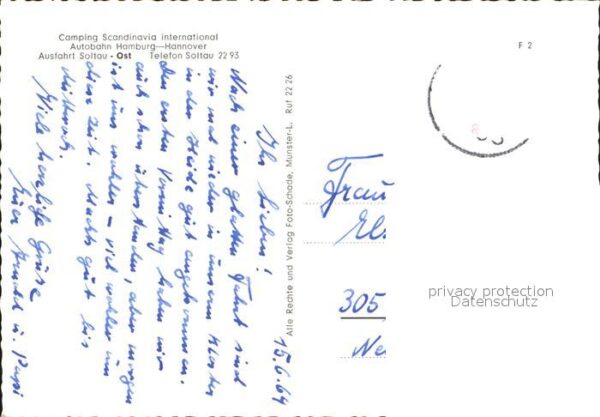 Camping Scandinavia international
Autobahn Hamburg—Hannover
Ausfahrt Soltau - Ost Telefon Soltau 22 93
F 2
15.6.64
Ihr Lieben!
Nach einer glatten Fahrt sind
wir mal wieder in unserm Kloster
in der Heide gut angekommen.
Den ersten Vormittag haben wir
auch schon überstanden, aber morgen
ist uns wohler – viel wohler um
diese Zeit. Machts gut bis
Mittwoch.
Viele herzliche Grüße
Eure u. Papi
Alle Rechte und Verlag Foto-Schade, Munster-L. Ruf 22 26
Frau
305
privacy protection
Datenschutz